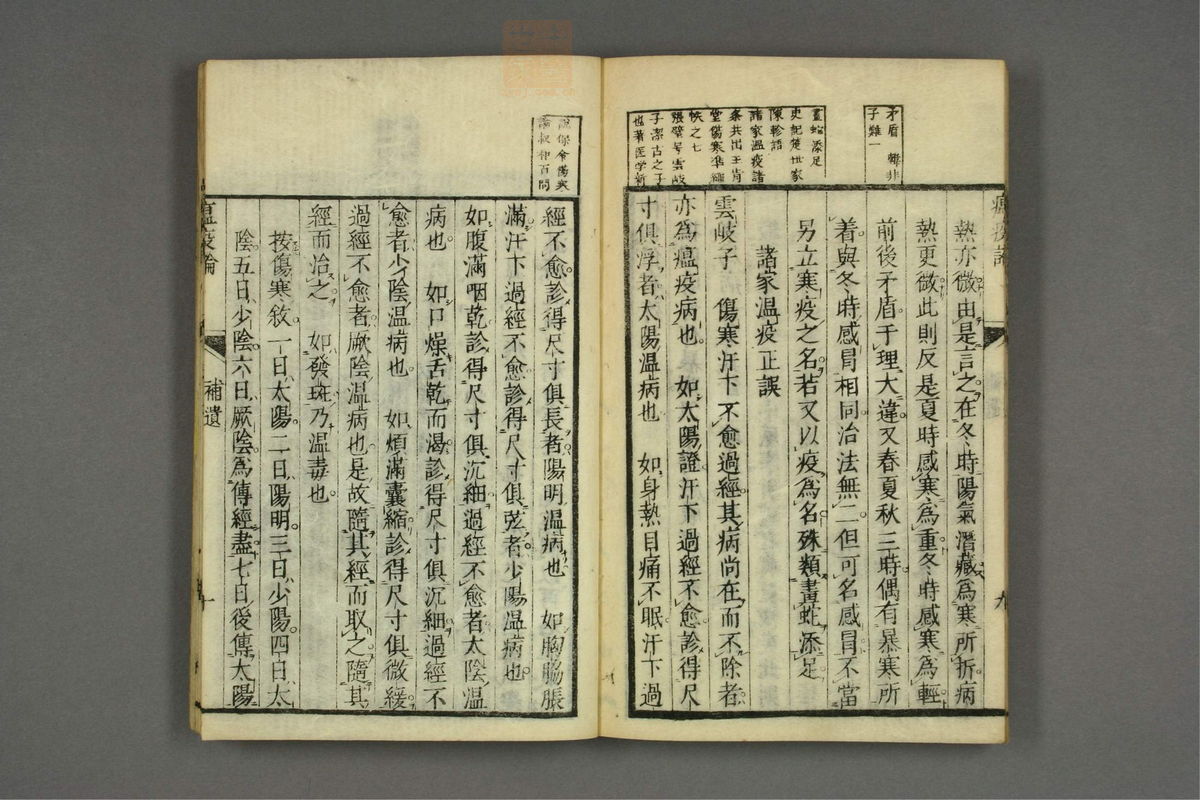 矛盾 韓非
子難一
畫蛇添足
史記楚世家
陳軫語
諸家温疫諸
条共出王肯
堂傷寒準繩
帙之七
張璧号雲岐
子潔古之子
也著医学新
熱亦微由是言之在冬時陽氣潜藏為寒所折病
熱更微此則反是夏時感寒為重冬時感寒為輕
前後矛盾于理大違又春夏秋三時偶有暴寒所
着與冬時感冒相同治法無二但可名感冒不當
另立寒疫之名若又以疫為名殊類畫虵添足
諸家温疫正誤
雲岐子 傷寒汗下不愈過經其病尚在而不除者
亦為瘟疫病也 如太陽證汗下過經不愈診得尺
寸俱浮者太陽温病也 如身熱目痛不眠汗下過
説保命傷寒
論叔和百問
經不愈診得尺寸俱長者陽明温病也 如胸脇脹
滿汗下過經不愈診得尺寸俱弦者少陽温病也
如腹滿咽乾診得尺寸俱沉細過經不愈者太陰温
病也 如口燥舌乾而渴診得尺寸俱沉細過經不
愈者少陰温病也 如煩滿囊縮診得尺寸俱微緩
過經不愈者厥陰温病也是故隨其經而取之隨其
經而治之 如發斑乃温毒也
按傷寒敘一日太陽二日陽明三日少陽四日太
陰五日少陰六日厥陰為傳經盡七日後傳太陽
瘟疫論
補遺
十
九